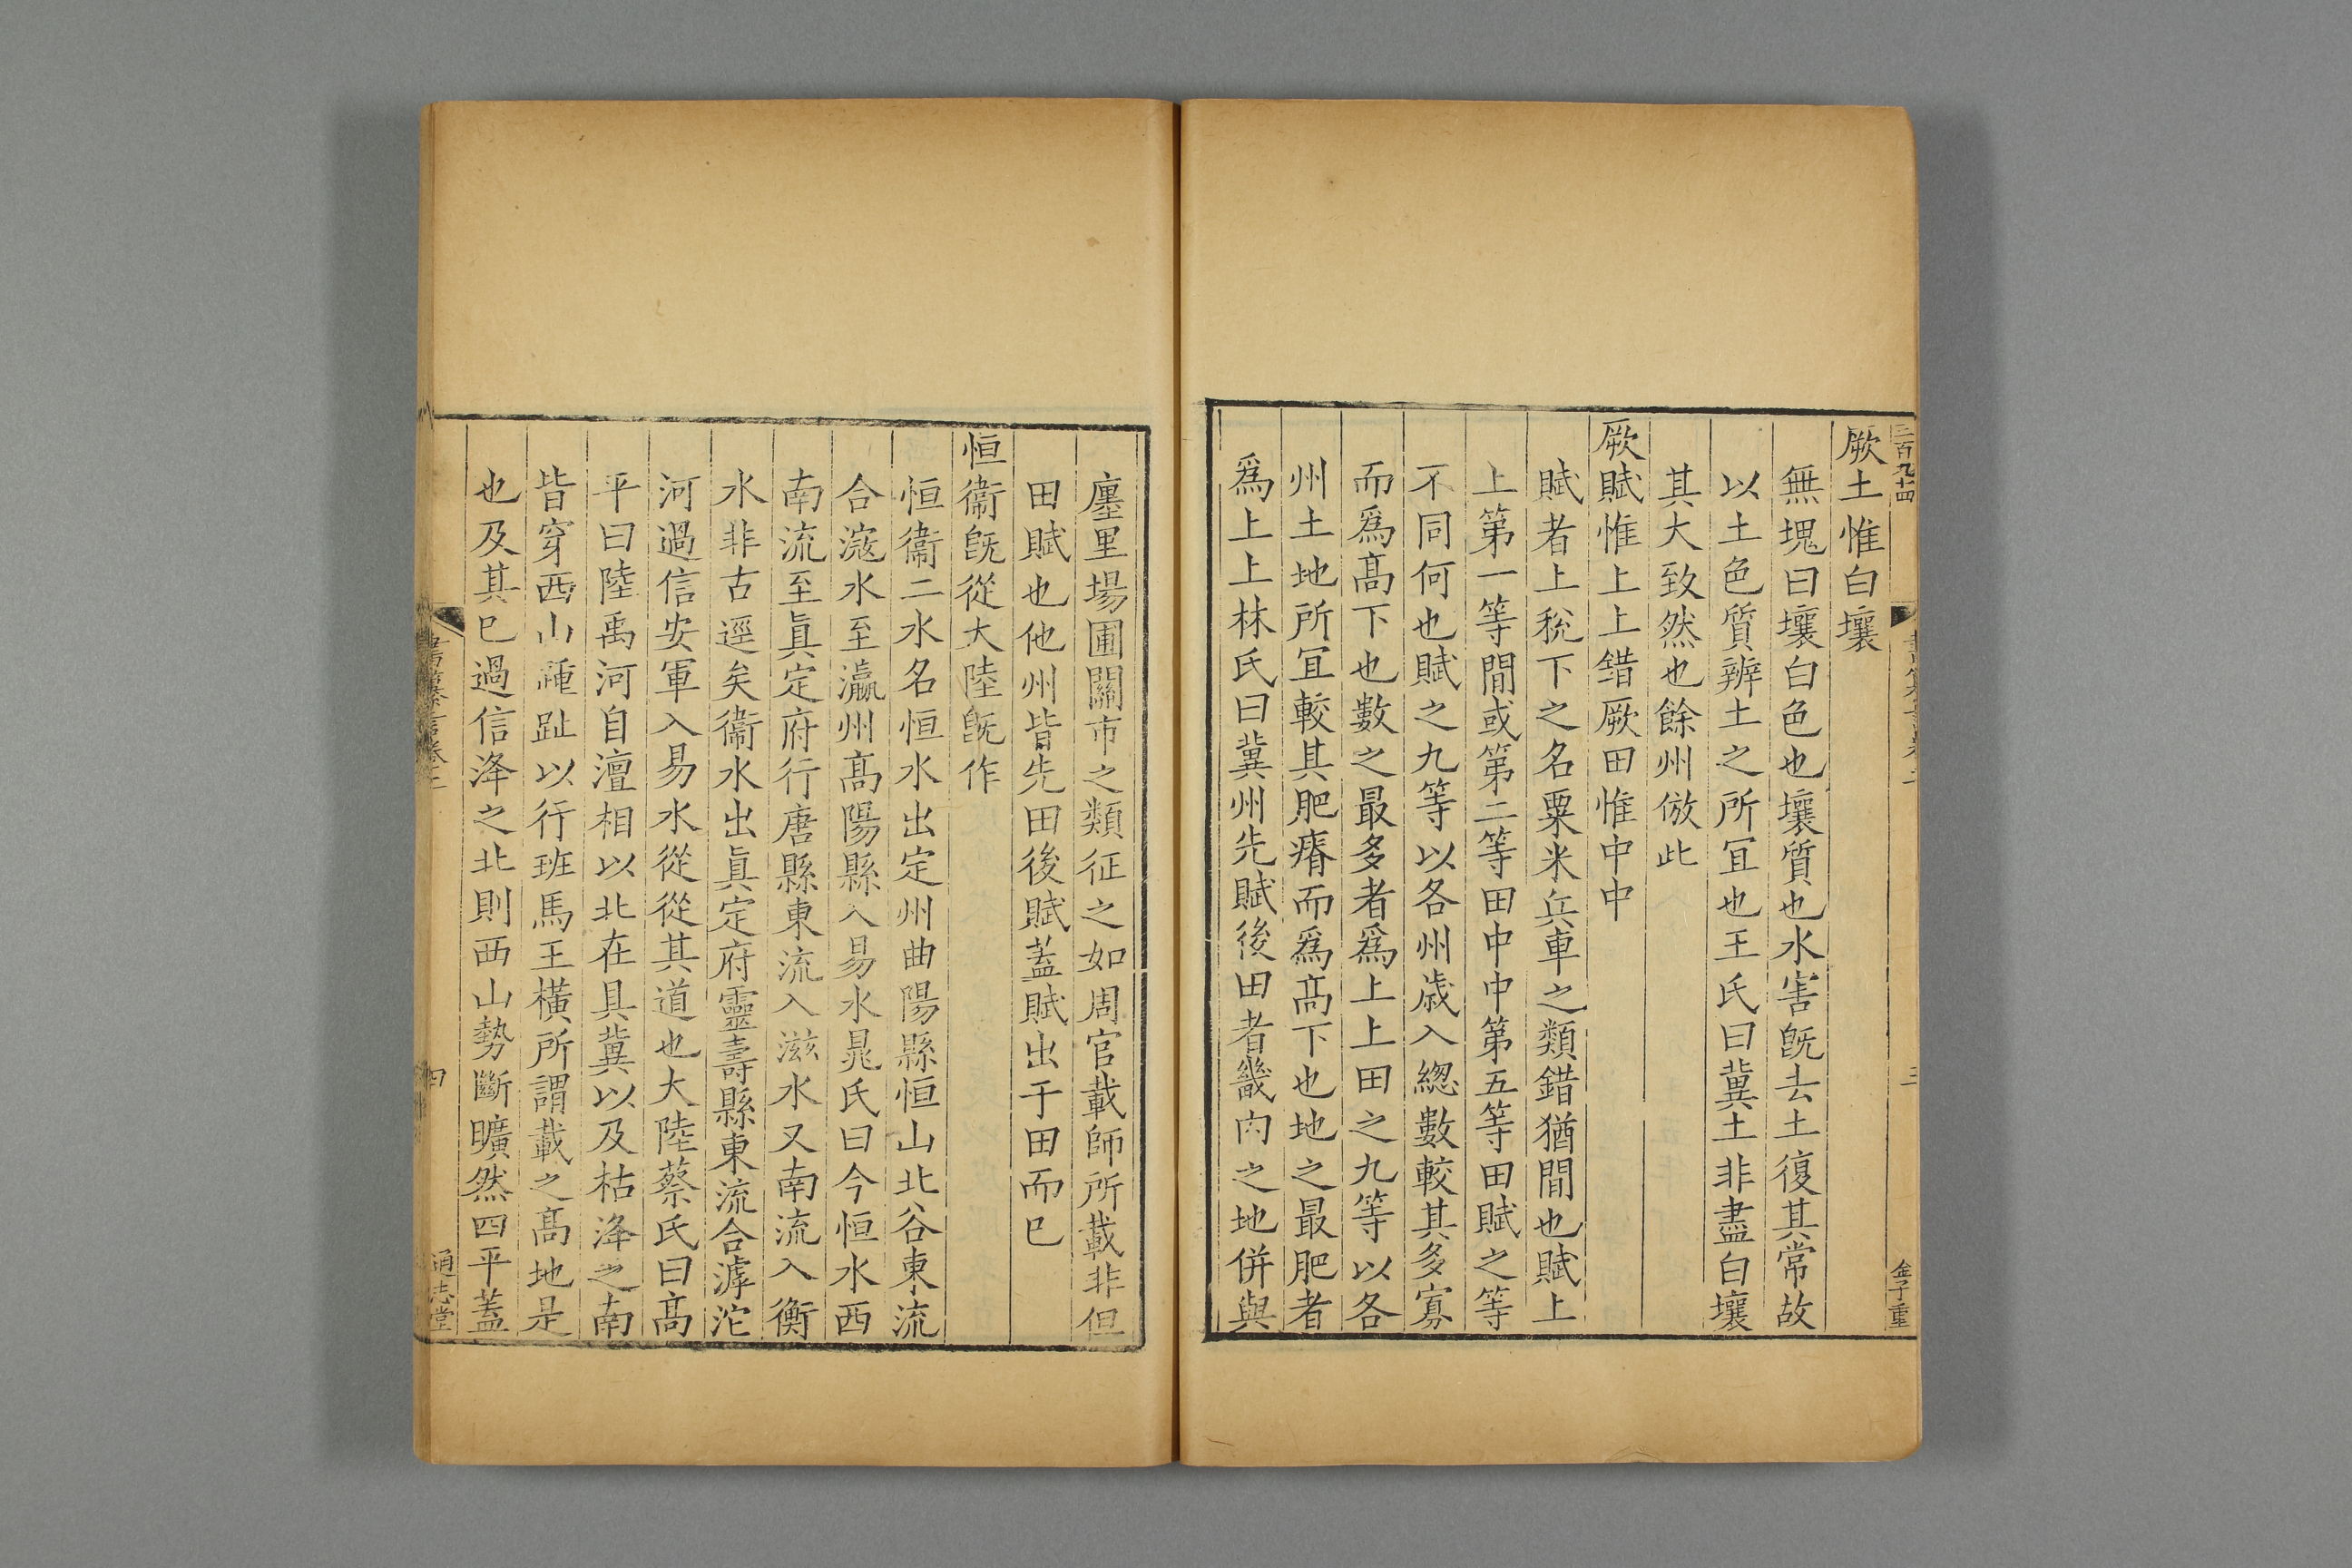 二百九十四
金子重
三
厥土惟白壤
無塊曰壤白色也壤質也水害旣去土復其常故
以土色質辨土之所冝也王氏曰冀土非盡白壤
其大致然也餘州倣此
厥賦惟上上錯厥田惟中中
賦者上稅下之名粟米兵車之類錯猶間也賦上
上第一等間或第二等田中中第五等田賦之等
不同何也賦之九等以各州歳入緫數較其多寡
而爲髙下也數之最多者爲上上田之九等以各
州土地所冝較其肥瘠而爲髙下也地之最肥者
爲上上林氏曰冀州先賦後田者畿内之地併與
廛里場圃關市之類征之如周官載師所載非但
田賦也他州皆先田後賦蓋賦出于田而已
恒衞旣從大陸旣作
恒衞二水名恒水出定州曲陽縣恒山北谷東流
合滱水至瀛州髙陽縣入易水晁氏曰今恒水西
南流至眞定府行唐縣東流入滋水又南流入衡
水非古逕矣衞水出眞定府靈壽縣東流合滹沱
河過信安軍入易水從從其道也大陸蔡氏曰髙
平曰陸禹河自澶相以北在具冀以及枯洚之南
皆穿西山踵趾以行班馬王橫所謂載之髙地是
也及其已過信洚之北則西山勢斷曠然四平蓋
四
通志堂